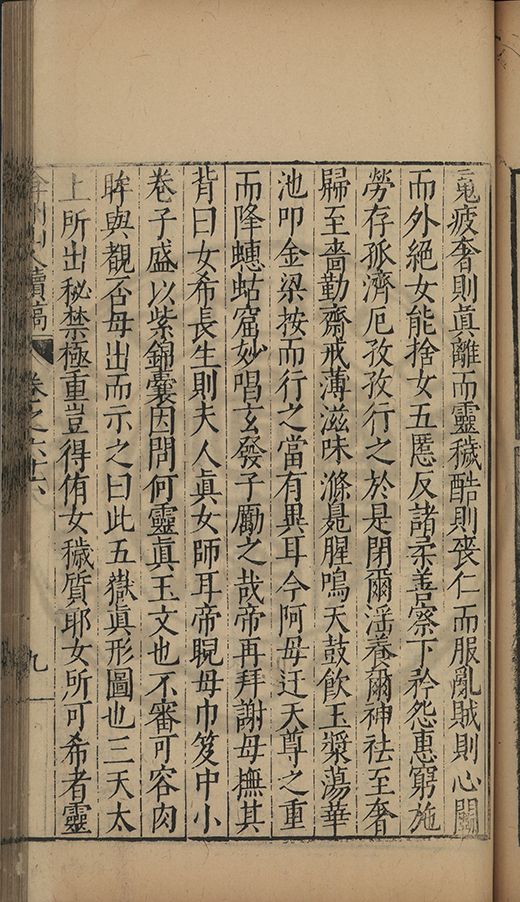 䰟疲奢則眞離而靈穢酷則喪仁而服亂賊則心鬭
而外絕女能捨女五惡反諸柔善察下矜怨惠窮施
勞存孤濟厄孜孜行之於是閉爾滛養爾神祛至奢
歸至嗇勤齋戒薄滋味滌鼂腥鳴天鼓飲玉漿蕩華
池叩金梁按而行之當有異耳今阿母迂天尊之重
而降蟪蛄窟妙唱玄發子勵之哉帝再拜謝母撫其
背曰女希長生則夫人眞女師耳帝睨母巾笈中小
卷子盛以紫錦囊因問何靈眞玉文也不審可容肉
眸與覩否母出而示之曰此五嶽眞形圖也三天太
上所出秘禁極重豈得侑女穢質耶女所可希者靈
山人續稿
卷之六十六
九